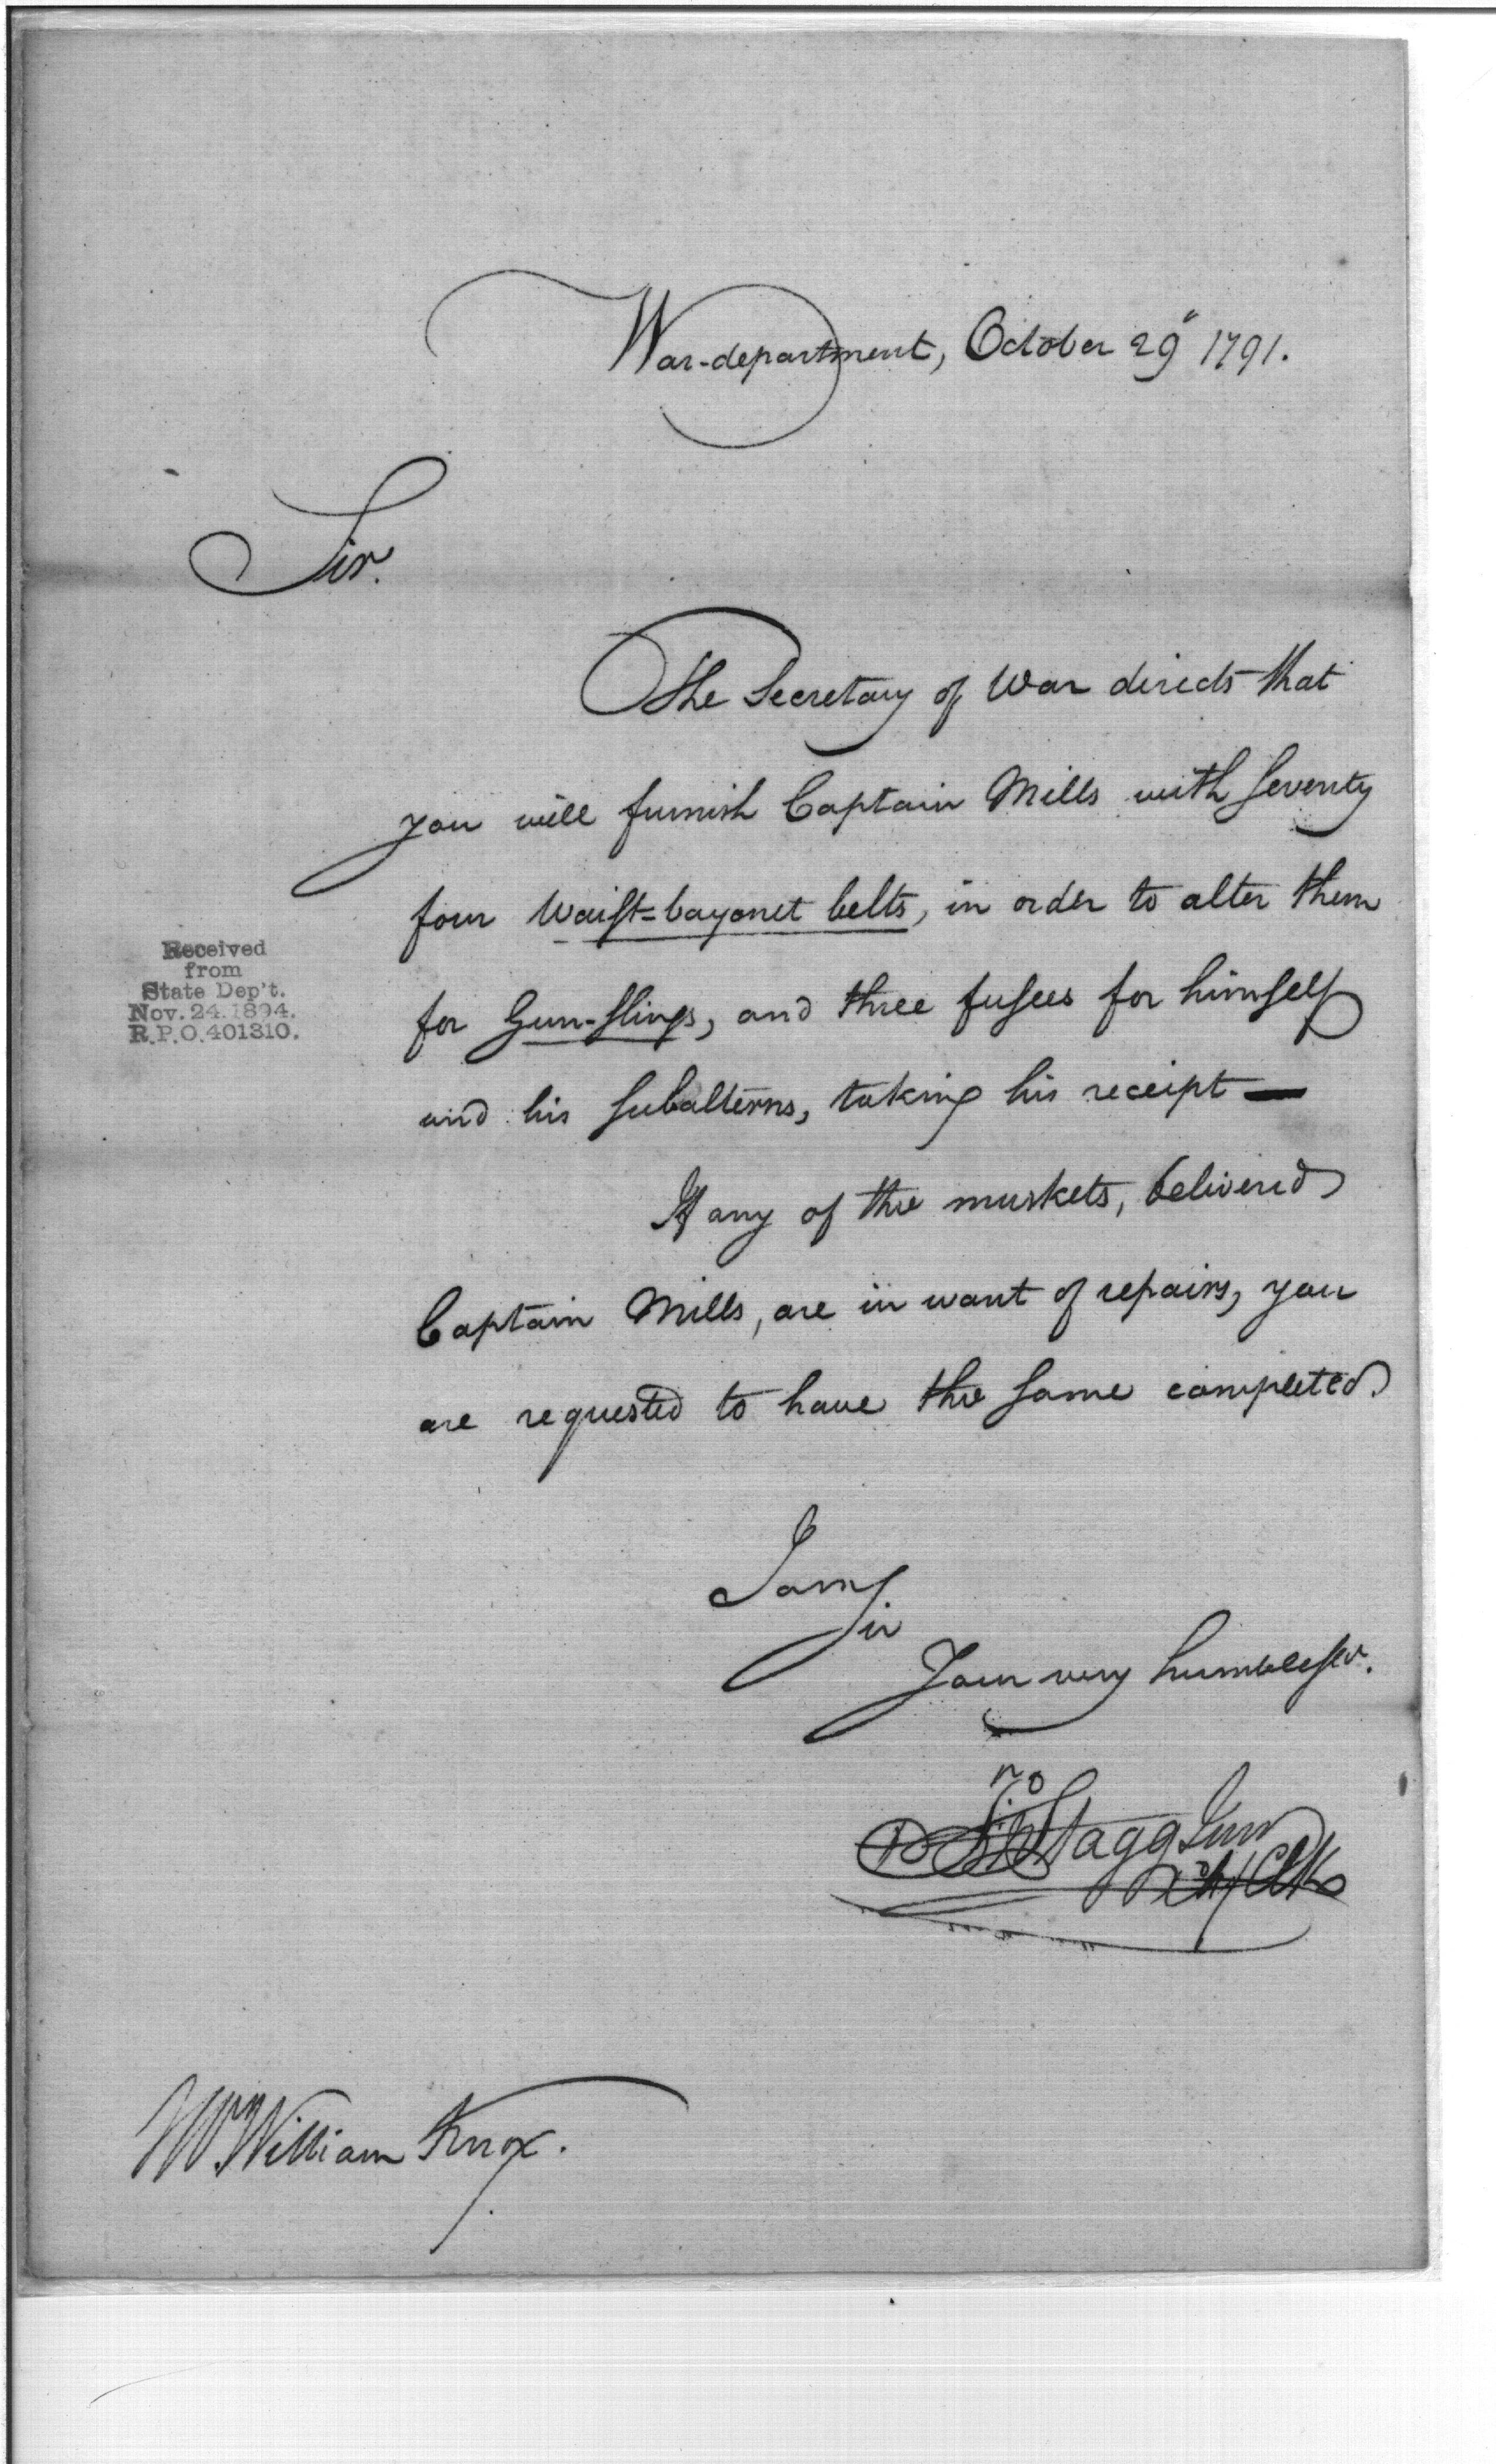 War-department, October 29" 1791.
Sir.
The Secretary of War directs that
you will furnish Captain Mills with seventy
four Waist=bayonet belts, in order to alter them
for Gun-slings, and three fusees for himself
and his subalterns, taking his receipt —
If any of the muskets, delivered
Captain Mills, are in want of repairs, you
are requested to have the same completed
I am
Sir
Your very humble ser.
Jno Stagg Jun
Chf Clk
Mr. William Knox.
Received
from
State Dep't.
Nov. 24. 1894.
R.P.O. 401310.